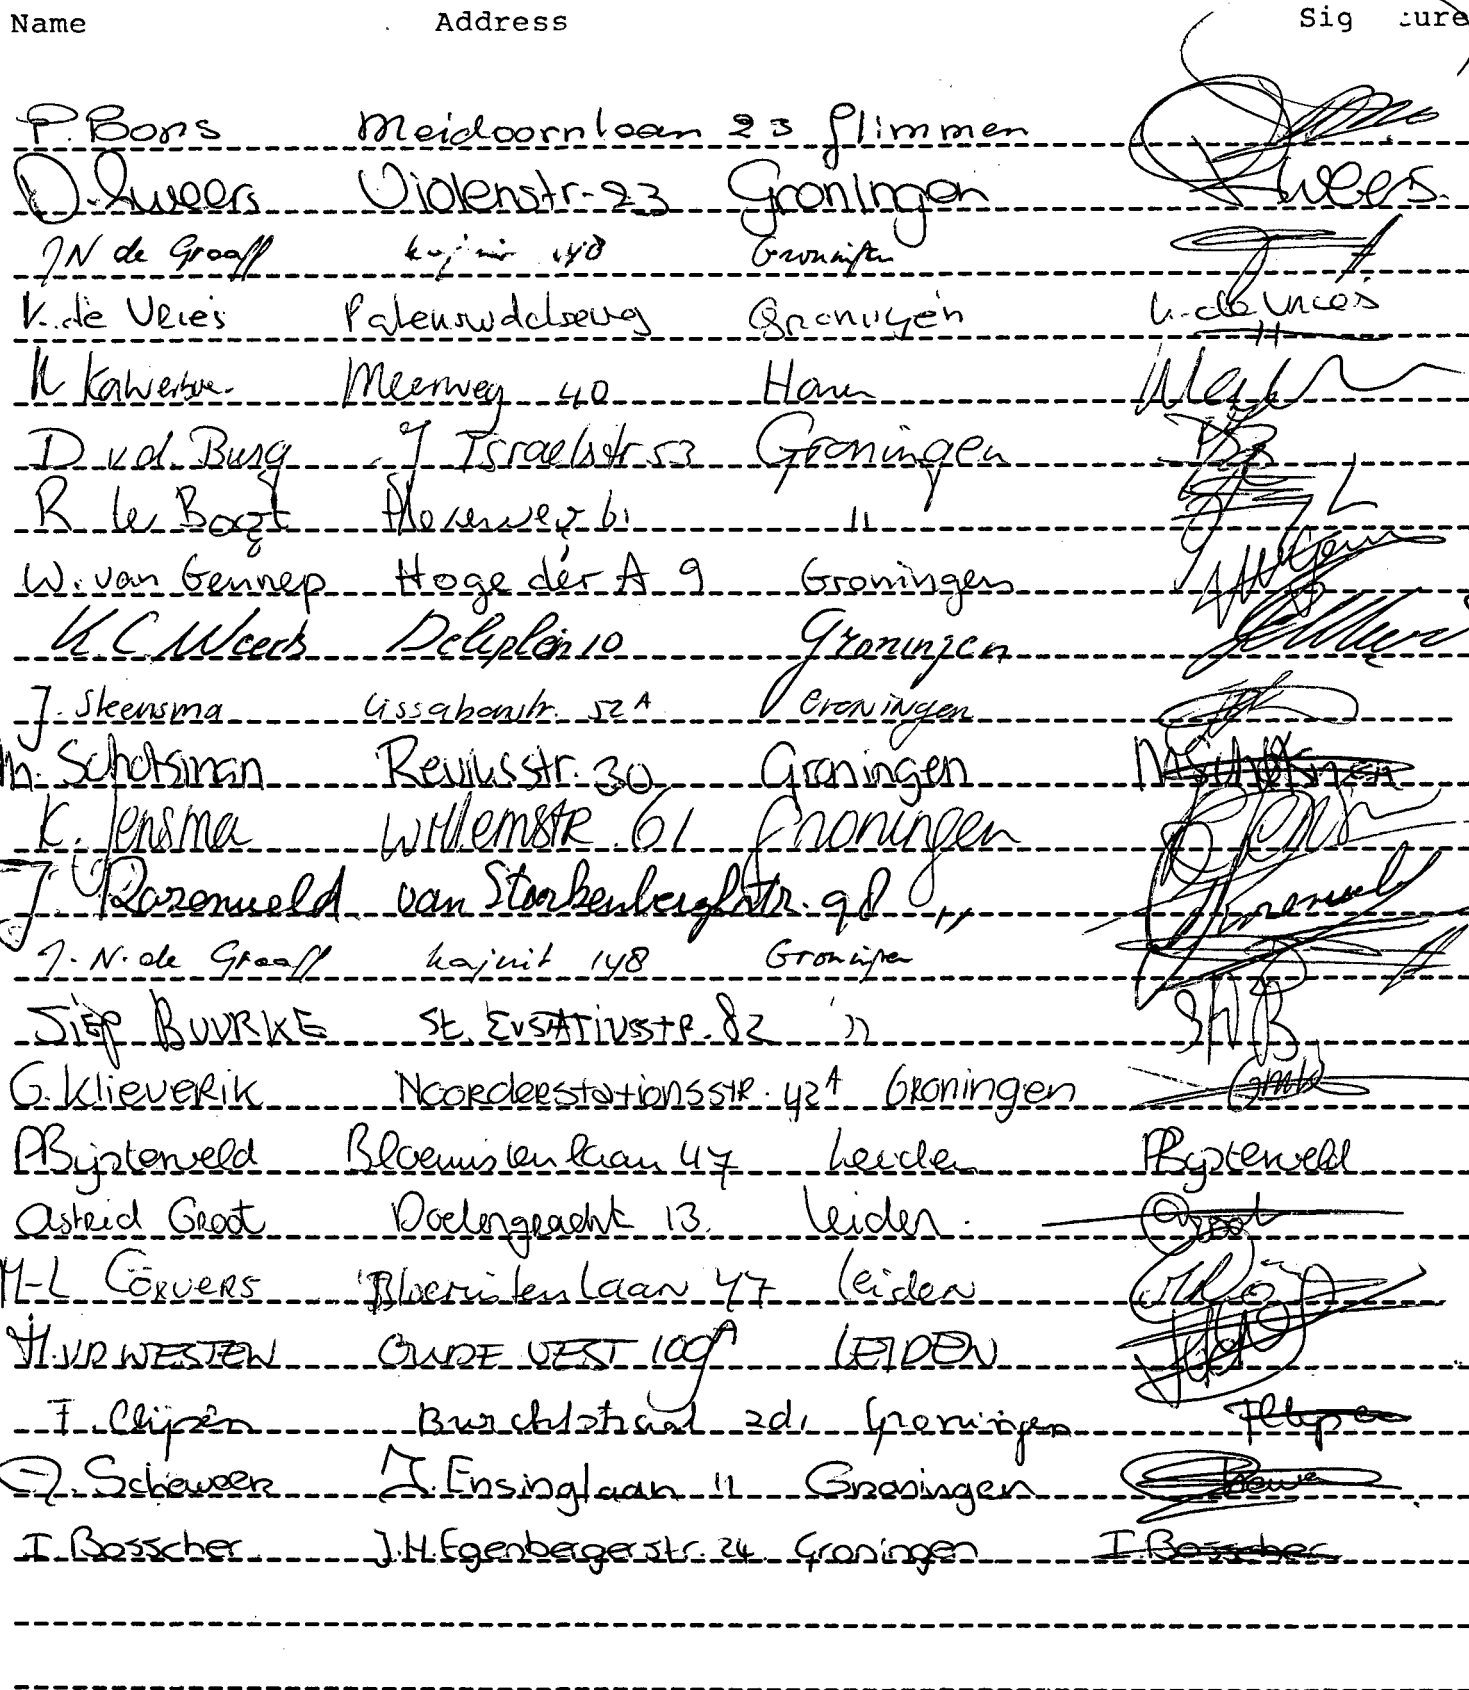 Name Address Sig ture
P. Bons Meidoornlaan 23 Glimmen
D. Sweers Violenstr. 23 Groningen Sweers.
J N de Graaff kajuit 148 Groningen
K. de Vries Paterswoldseweg Groningen K. de Vries
K Meerweg 40 Haren
D v.d. Burg J Israelsstr 53 Groningen
R 61 "
W. van Gennep Hoge der A 9 Groningen
K. C. Deliplein 10 Groningen
J. Steensma Lissabonstr. 52 A Groningen
M. Schotsman Reviusstr. 30 Groningen M Schotsman
K. Jensma Willemstr. 61 Groningen
J. Rozenveld van Starkenberghstr. 98 "
J. N. de Graaff kajuit 148 Groningen
Siep BUURKE St. EUSTATIUSSTR. 82 "
G. Klieverik Noorderstationsstr. 42 A Groningen
P Bijsterveld Bloemistenlaan 47 Leiden P Bijsterveld
Astrid Groot Doelengracht 13. Leiden. Groot
M-L CÖRVERS Bloemistenlaan 47 Leiden
H. V.D WESTEN OUDE VEST 109A LEIDEN
F. Clijsen 2d, Groningen
J. Scheweer J. Ensinglaan 11 Groningen
I Bosscher J.H. Egenbergerstr. 24 Groningen I. Bosscher